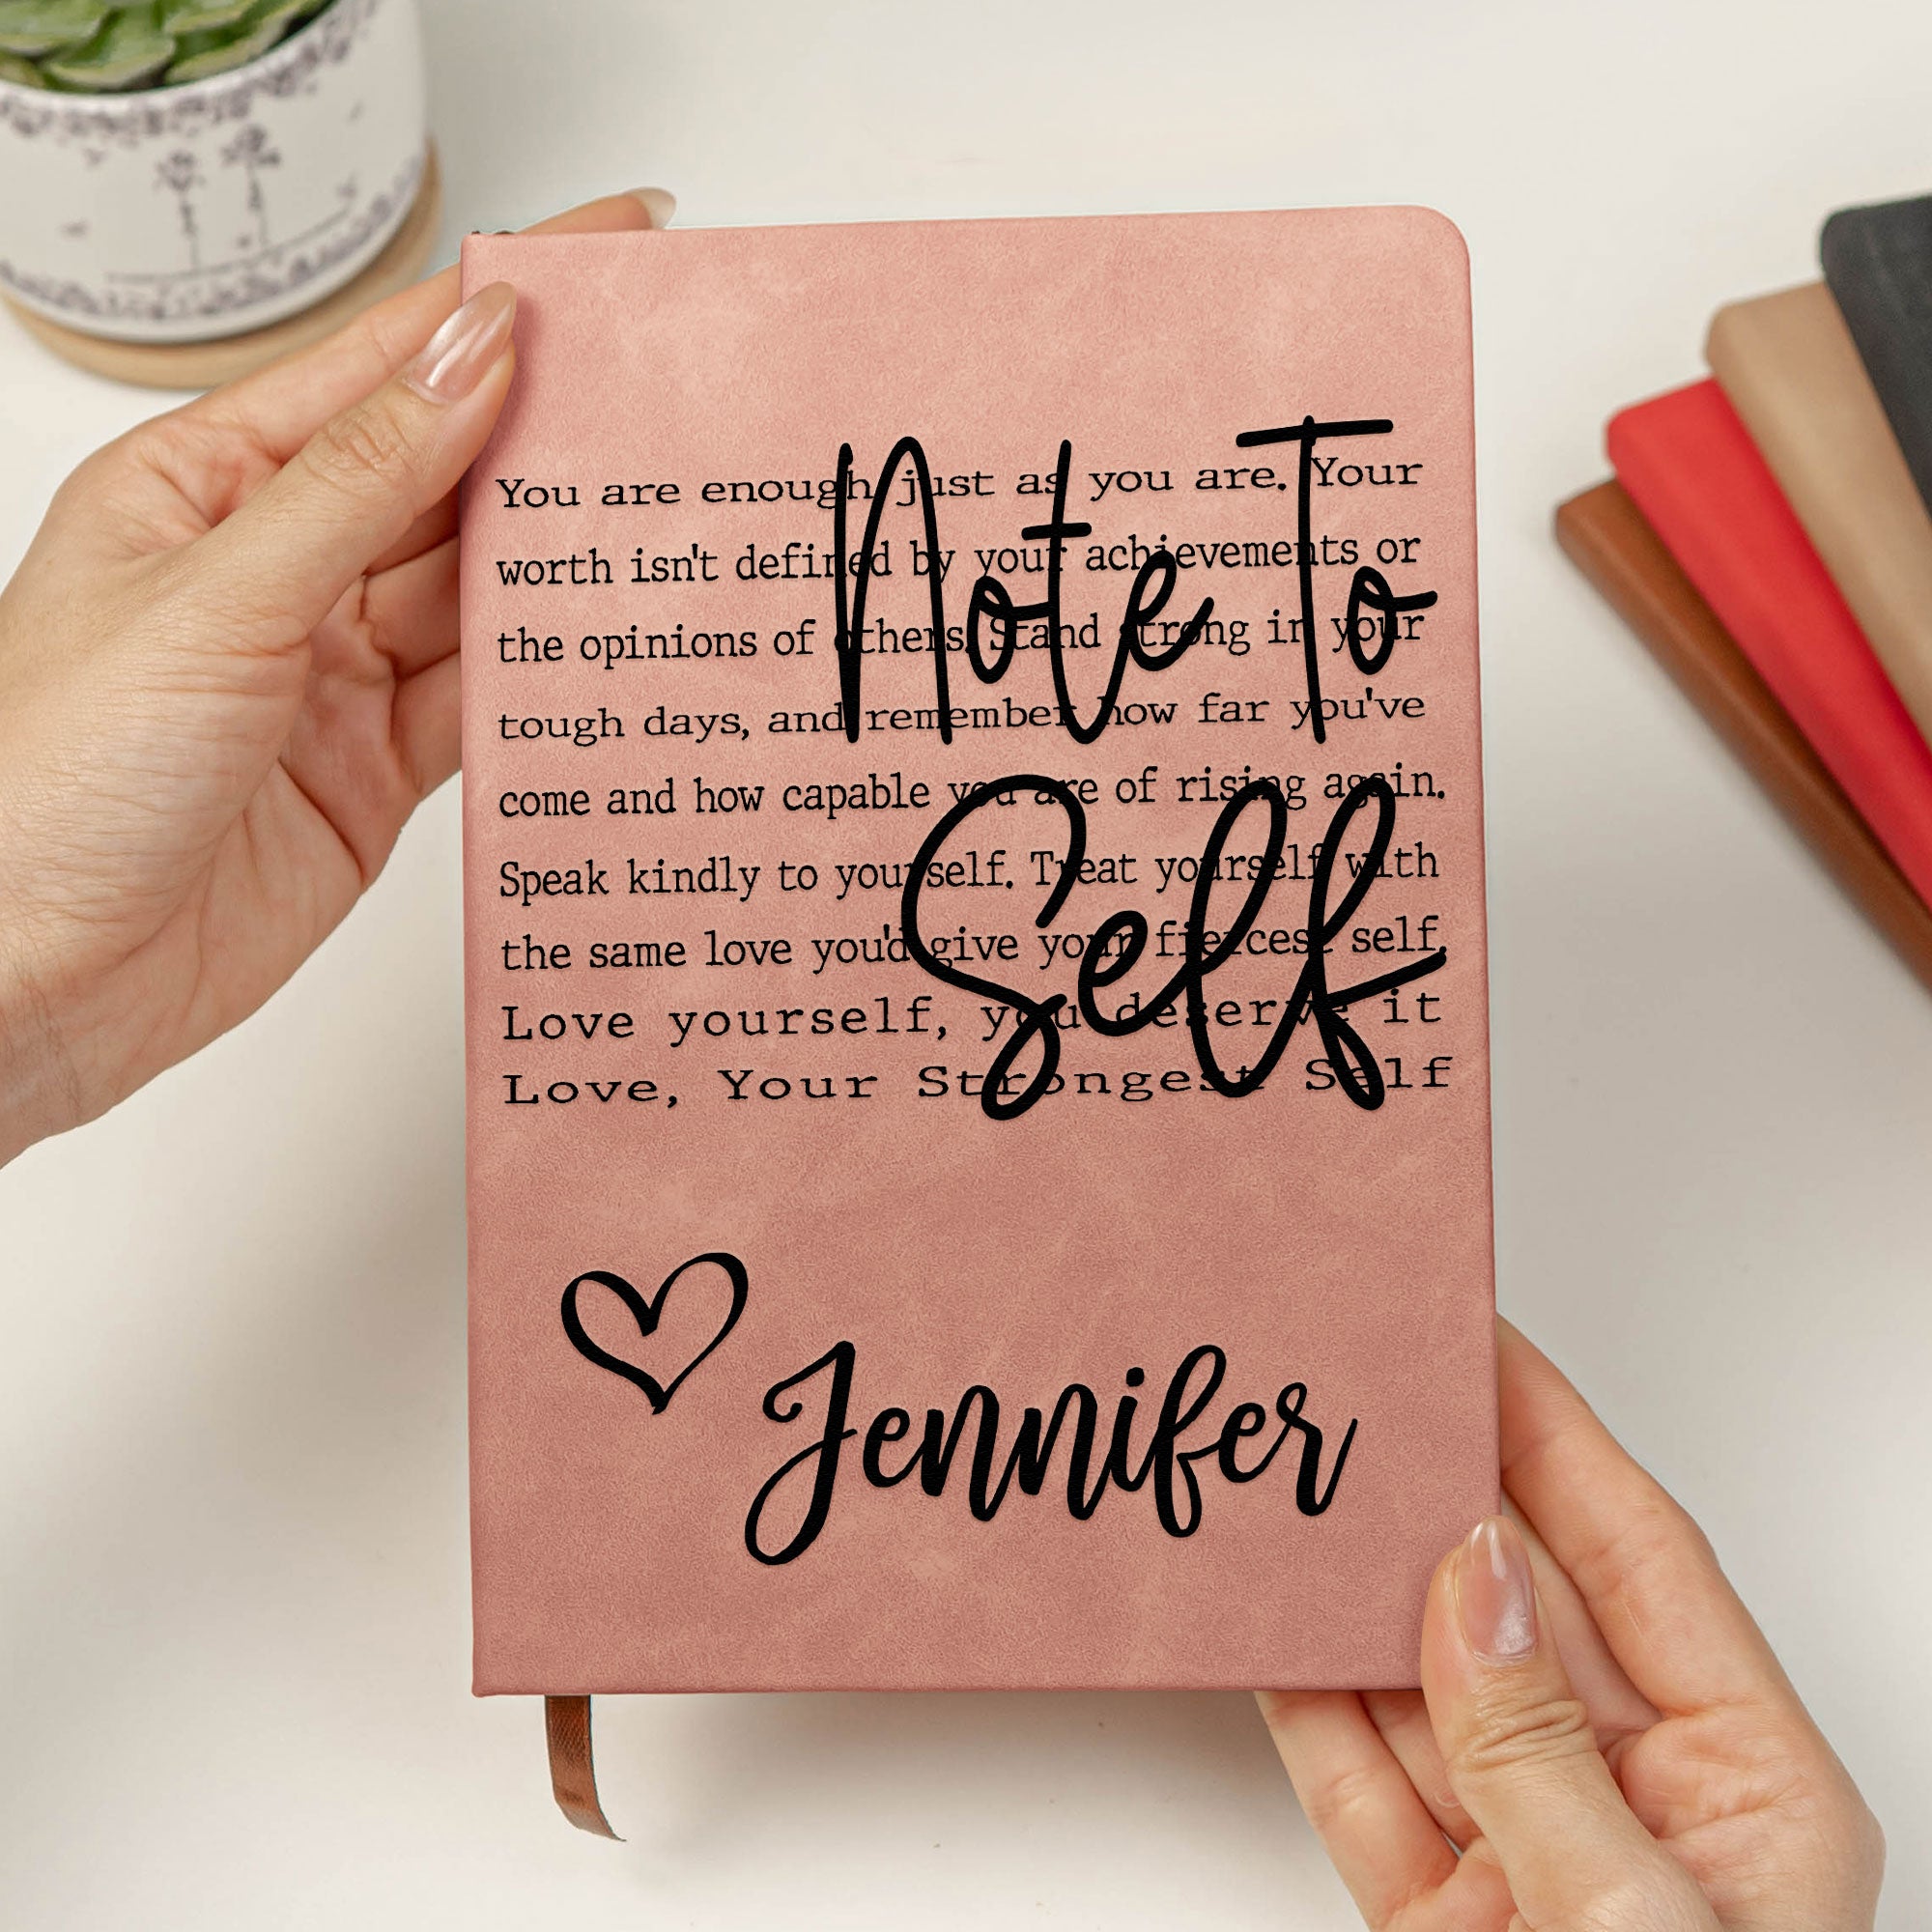 Note To
Self
You are enough just as you are. Your
worth isn't defined by your achievements or
the opinions of others. Stand strong in your
tough days, and remember how far you've
come and how capable you are of rising again.
Speak kindly to yourself. Treat yourself with
the same love you'd give your fiercest self.
Love yourself, you deserve it
Love, Your Strongest Self
Jennifer